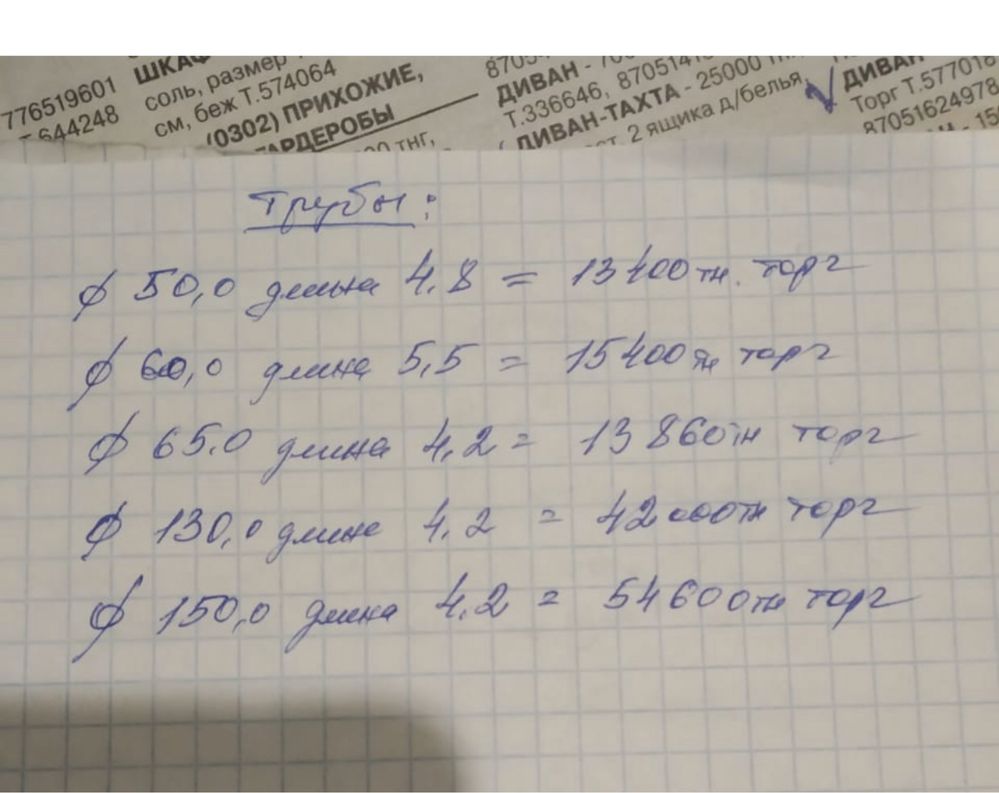 776519601 ШКАФ
Т.644248 соль, размер
см, беж Т.574064
(0302) ПРИХОЖИЕ,
ГАРДЕРОБЫ
00 тнг,
8705
ДИВАН - 
Т.336646, 8705141
ДИВАН-ТАХТА - 25000
2 ящика д/белья,
ДИВАН
Торг Т.577018
87051624978
Трубы:
ϕ 50,0 длина 4,8 = 13400 тн. торг
ϕ 60,0 длина 5,5 = 15400 тн торг
ϕ 65.0 длина 4,2 = 13860 тн торг
ϕ 130,0 длина 4,2 = 42000 тн торг
ϕ 150,0 длина 4,2 = 54600 тн торг